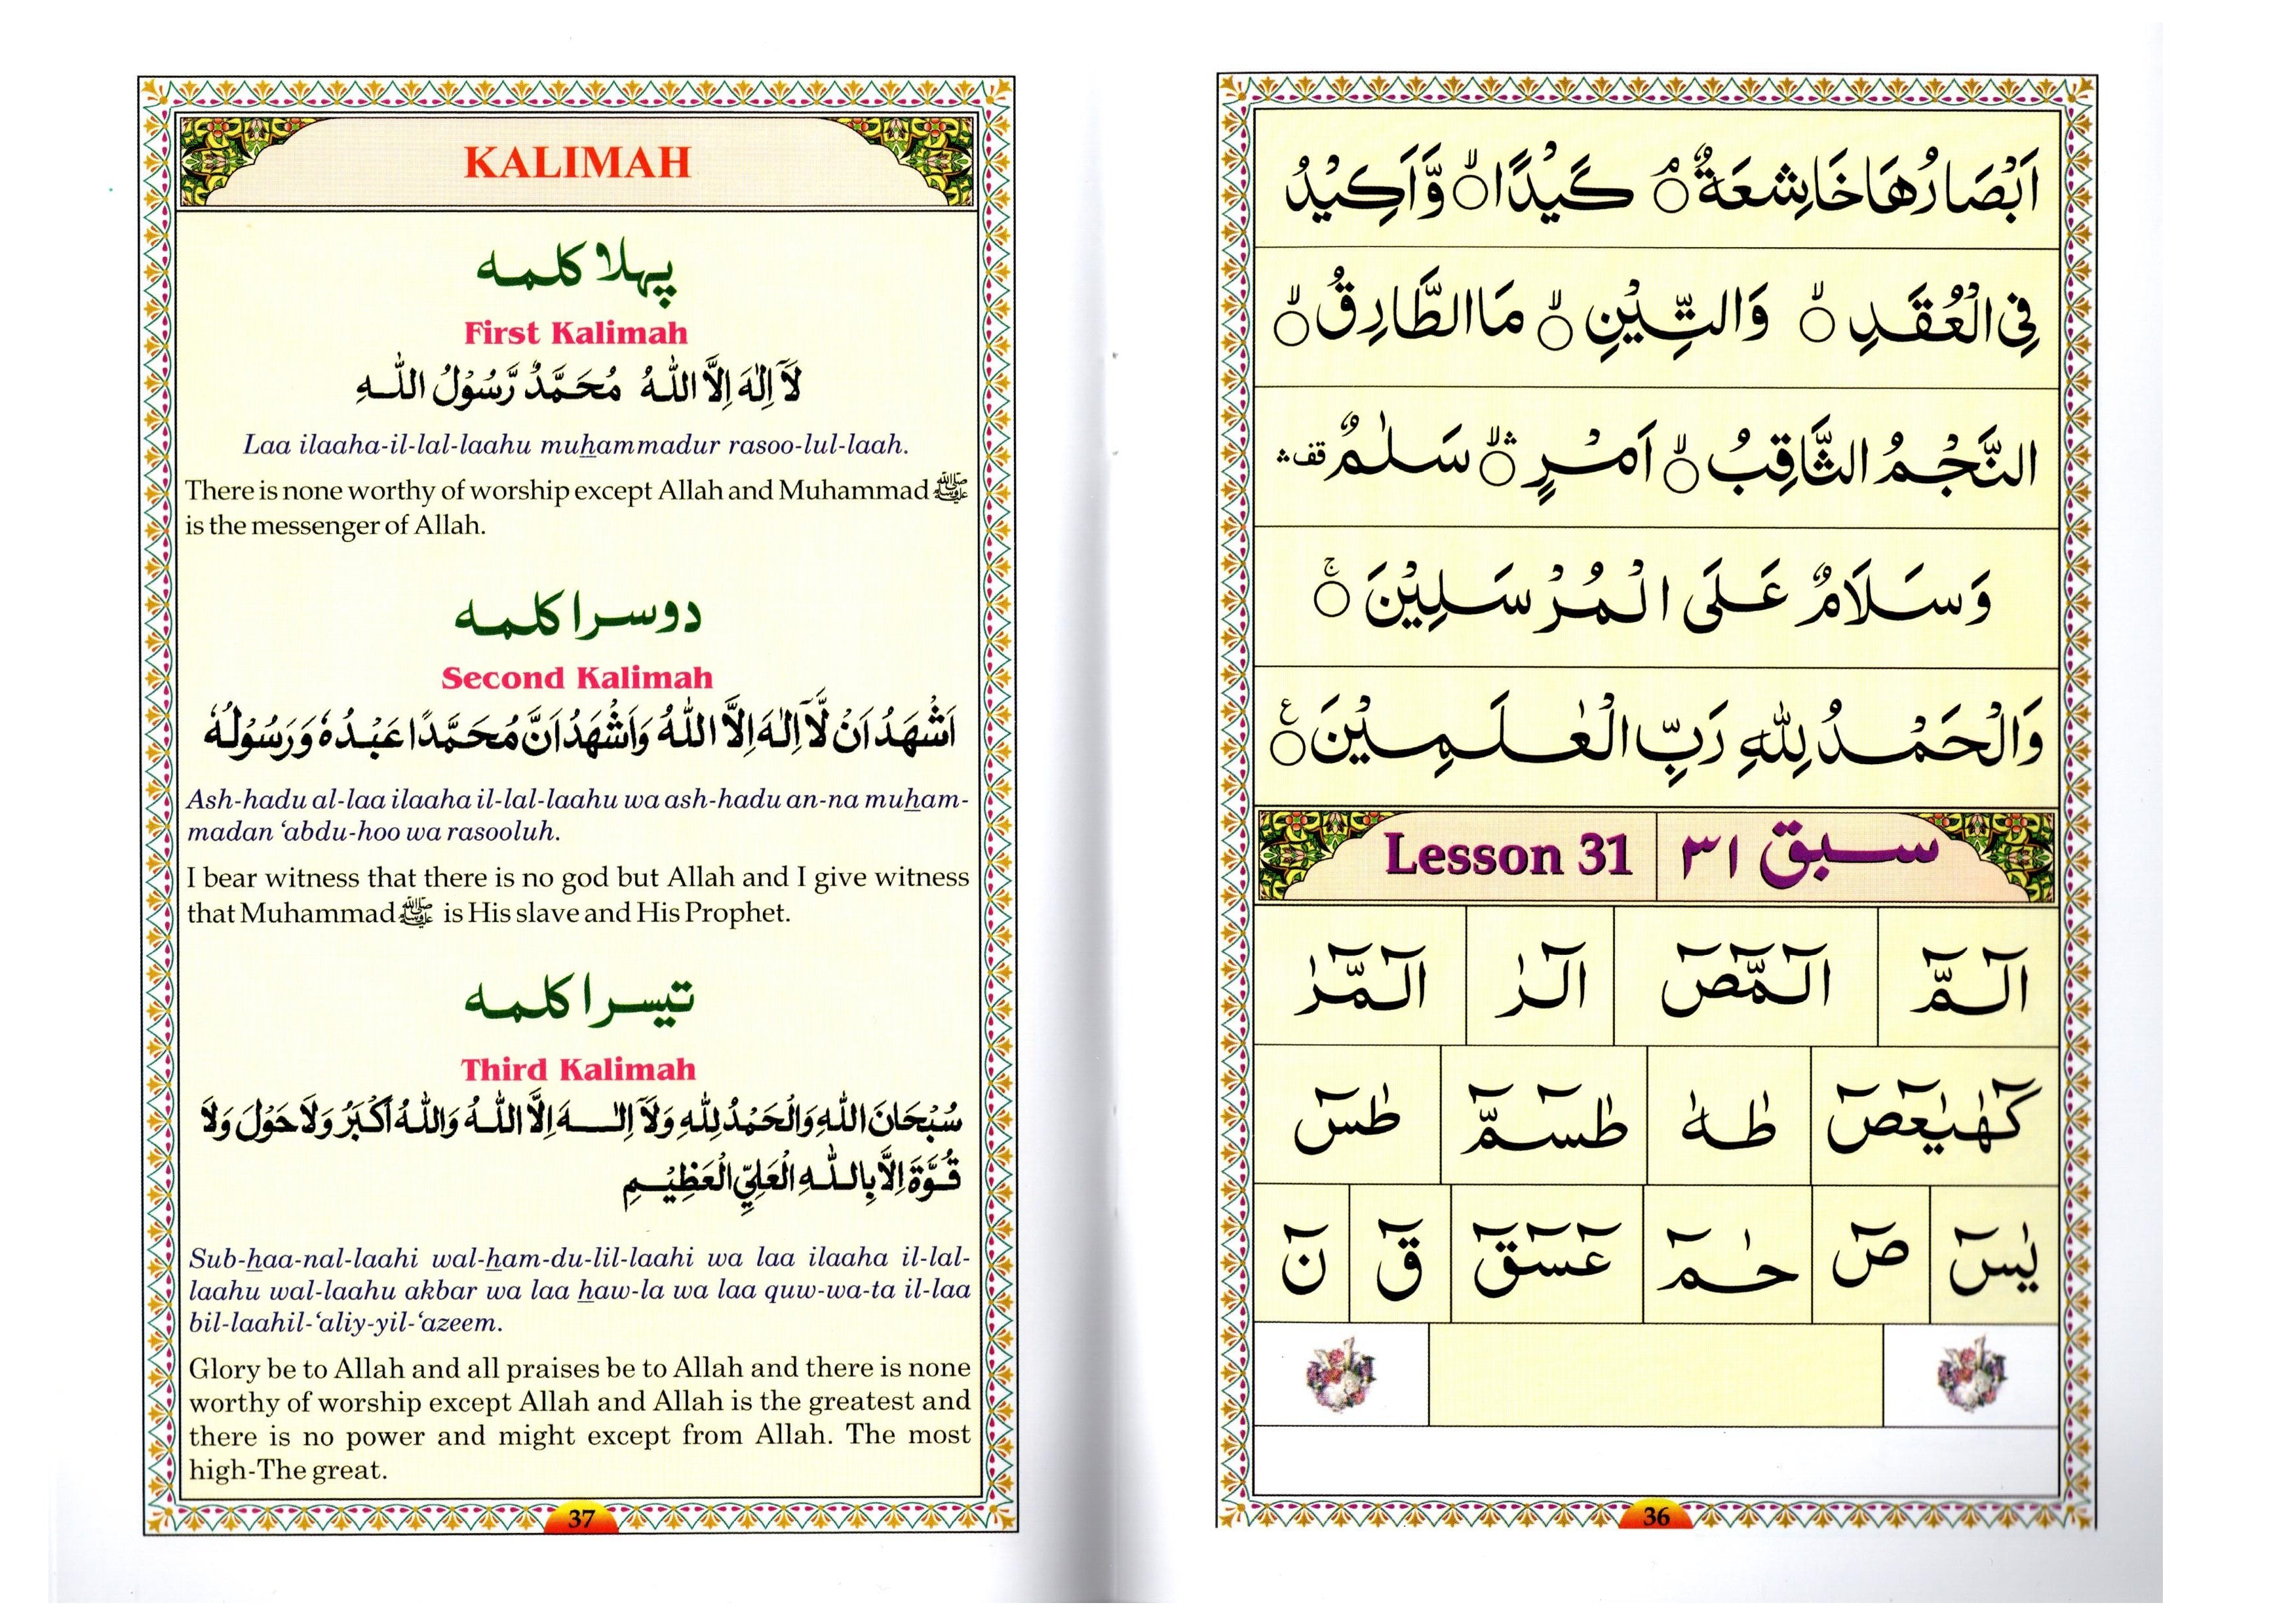 اَبْصَارُهَا خَاشِعَةٌ ۘ كَيْدًا ۙ وَّاَكِيْدُ
فِي الْعُقَدِ ۙ وَالتِّيْنِ ۙ مَا الطَّارِقُ ۙ
النَّجْمُ الثَّاقِبُ ۙ اَمْرٍ ۙۛ سَلٰمٌ قف ۛ
وَسَلَامٌ عَلَى الْمُرْسَلِيْنَ ۚ
وَالْحَمْدُ لِلّٰهِ رَبِّ الْعٰلَمِيْنَ ع
سبق ٣١ Lesson 31
الٓمّٓ الٓمّٓصٓ الٓرٰ الٓمّٓرٰ
كٓهٰيٰعٓصٓ طٰهٰ طٰسٓمّٓ طٰسٓ
يٰسٓ صٓ حٰمٓ عٓسٓقٓ قٓ نٓ
36
KALIMAH
پہلا کلمہ
First Kalimah
لَآ اِلٰهَ اِلَّا اللّٰهُ مُحَمَّدٌ رَّسُوْلُ اللّٰهِ
Laa ilaaha-il-lal-laahu muhammadur rasoo-lul-laah.
There is none worthy of worship except Allah and Muhammad ﷺ
is the messenger of Allah.
دوسرا کلمہ
Second Kalimah
اَشْهَدُ اَنْ لَّآ اِلٰهَ اِلَّا اللّٰهُ وَاَشْهَدُ اَنَّ مُحَمَّدًا عَبْدُهٗ وَرَسُوْلُهٗ
Ash-hadu al-laa ilaaha il-lal-laahu wa ash-hadu an-na muham-
madan ‘abdu-hoo wa rasooluh.
I bear witness that there is no god but Allah and I give witness
that Muhammad ﷺ is His slave and His Prophet.
تیسرا کلمہ
Third Kalimah
سُبْحَانَ اللّٰهِ وَالْحَمْدُ لِلّٰهِ وَلَآ اِلٰهَ اِلَّا اللّٰهُ وَاللّٰهُ اَكْبَرُ وَلَا حَوْلَ وَلَا
قُوَّةَ اِلَّا بِاللّٰهِ الْعَلِيِّ الْعَظِيْمِ
Sub-haa-nal-laahi wal-ham-du-lil-laahi wa laa ilaaha il-lal-
laahu wal-laahu akbar wa laa haw-la wa laa quw-wa-ta il-laa
bil-laahil-‘aliy-yil-‘azeem.
Glory be to Allah and all praises be to Allah and there is none
worthy of worship except Allah and Allah is the greatest and
there is no power and might except from Allah. The most
high-The great.
37